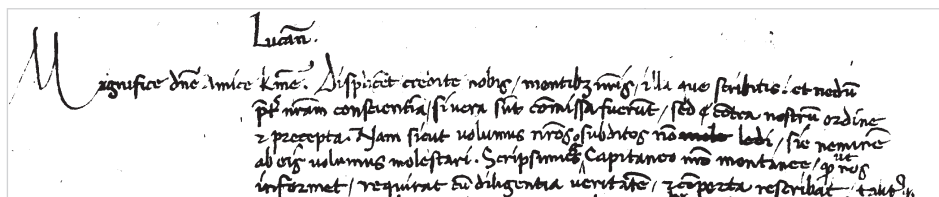 Lucan̄.
Magnifice dn̄e amice k̄me. Displicēt credite nobis / montibꝫ nr̄is / illa que scribitis. et nedū
p̄t nr̄am conscientiā / si vera sūt cōmissa fuerūt / sed ⁊ cōtra nostrū ordinē
⁊ precepta. Nam sicut volumus nr̄os subditos nō ledi / sic neminē
ab eis volumus molestari. Scripsimus Capitaneo nr̄o montanee / ut nos
informet / requirat cū diligentia veritatē / ⁊ cōperta rescribat